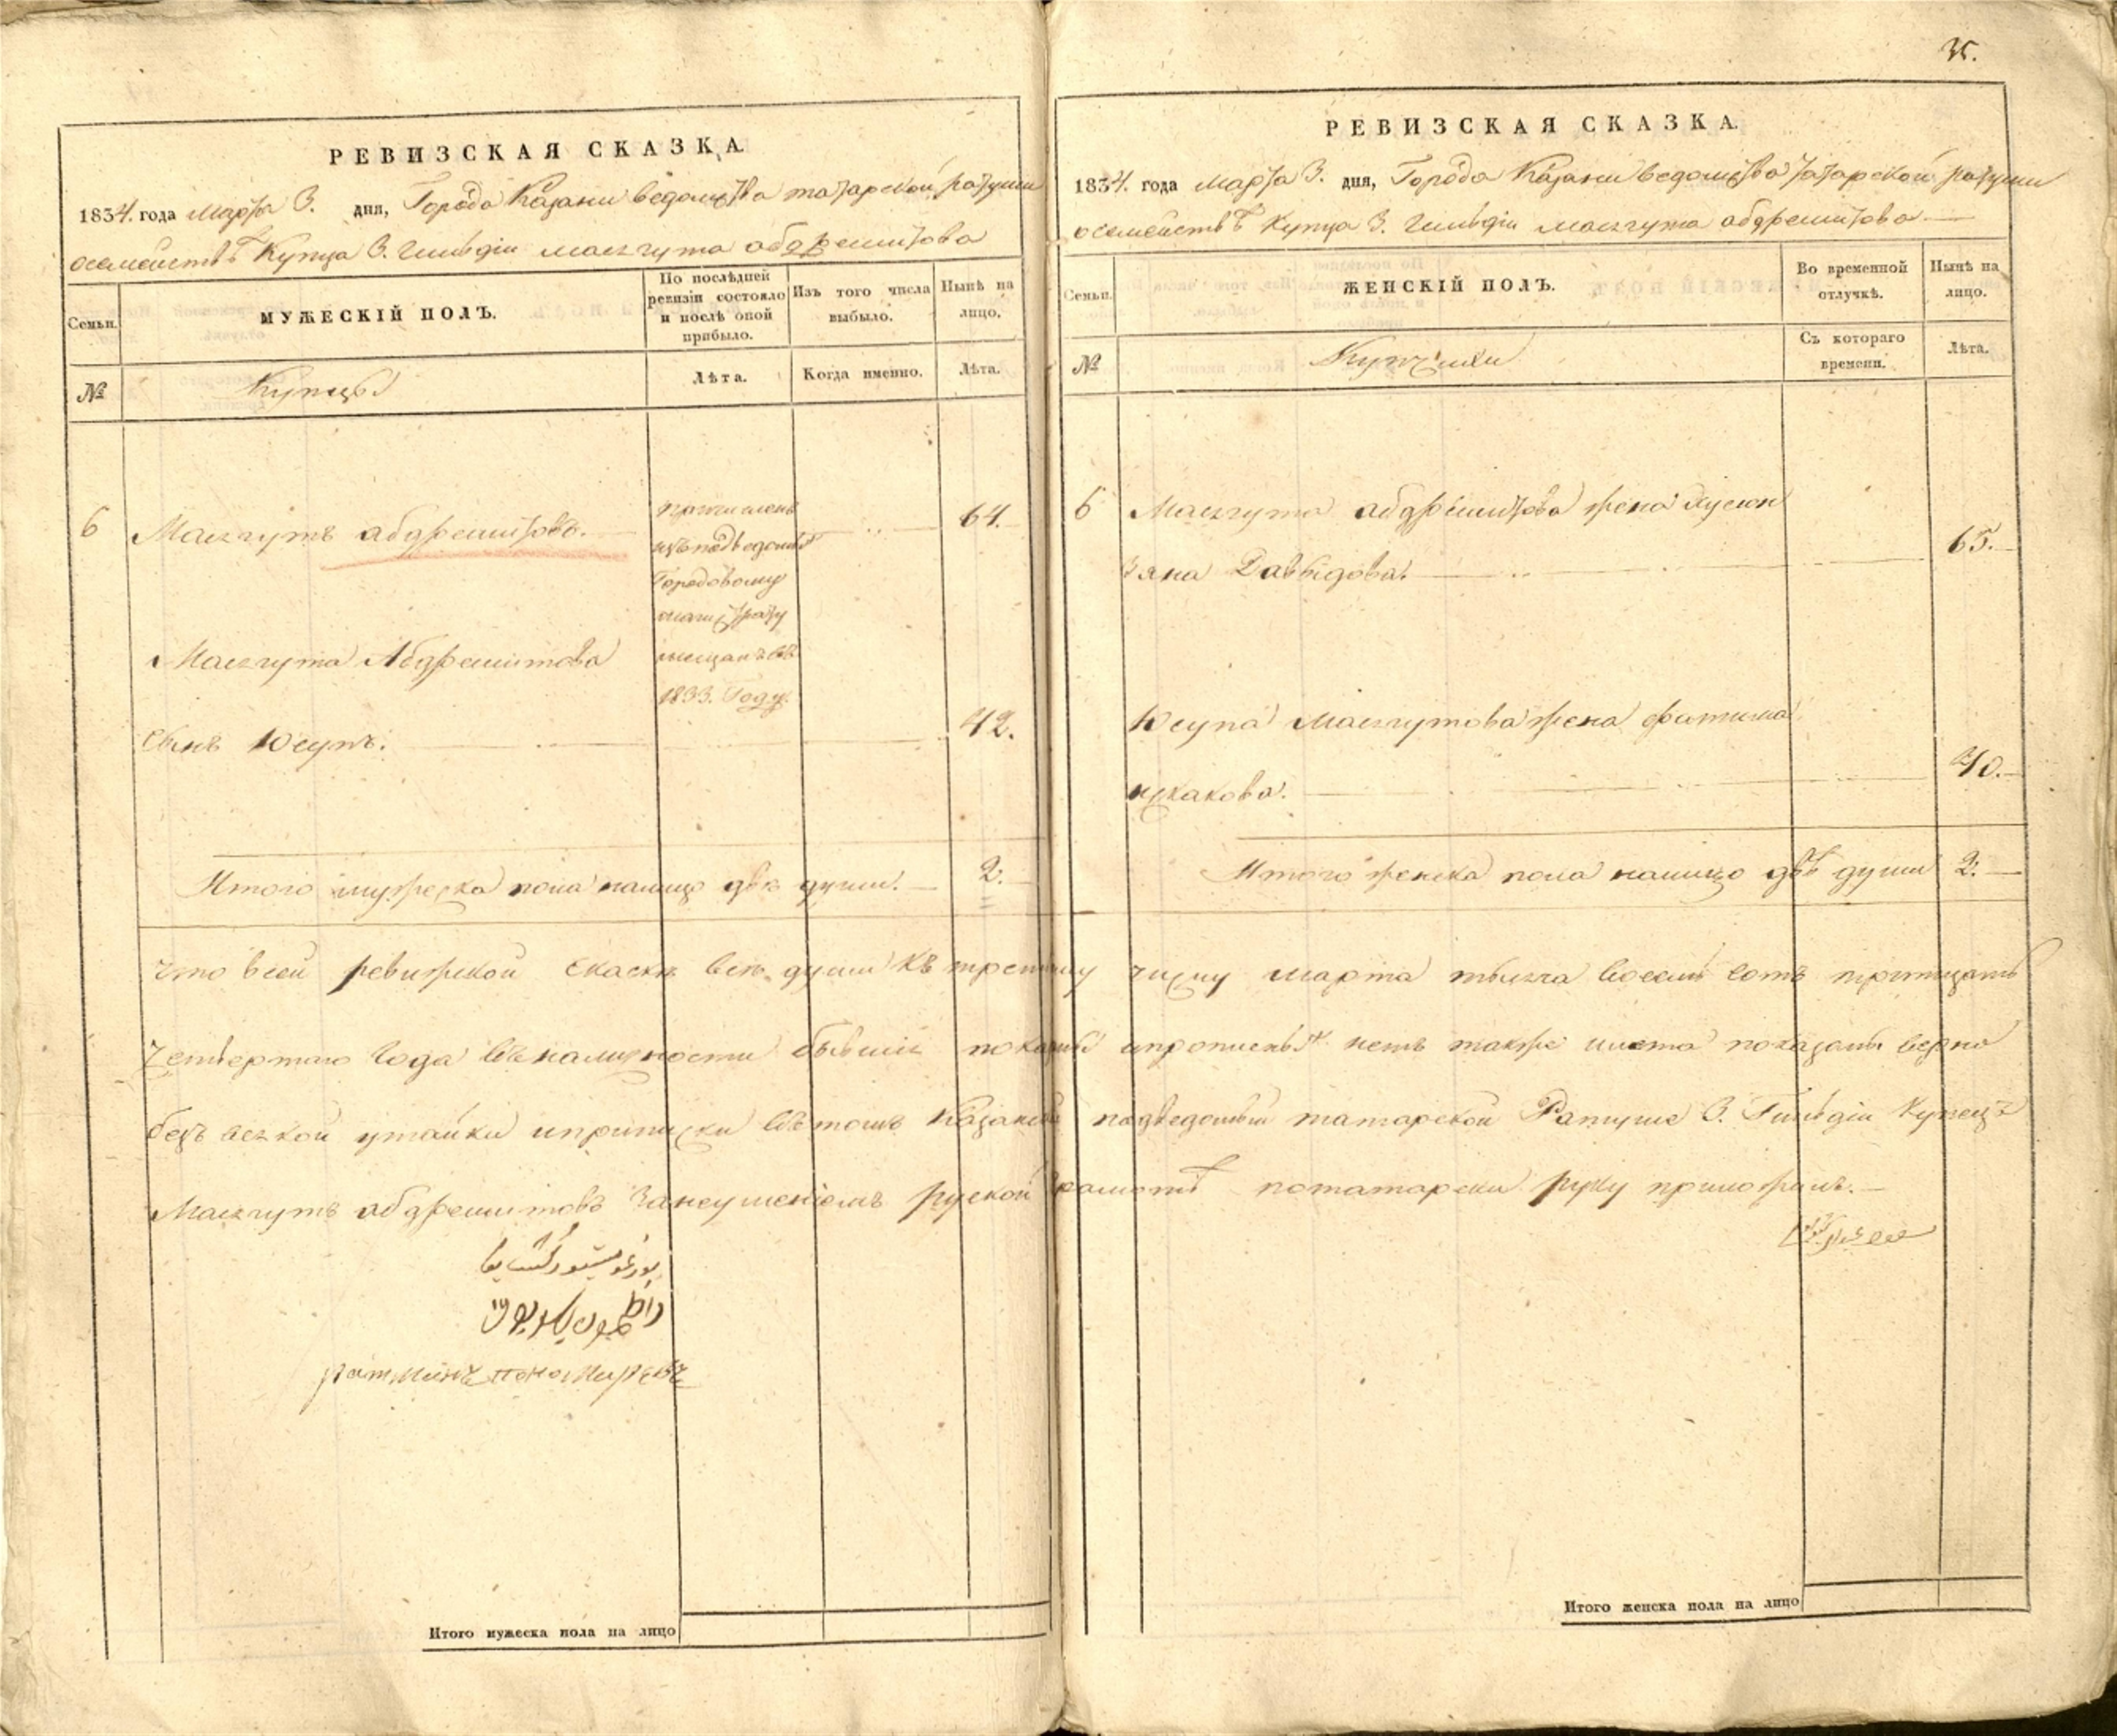 РЕВИЗСКАЯ СКАЗКА.
1834. года Марта 3. дня, Города Казани ведомства татарской ратуши
о семействѣ Купца 3. Гильдіи Масгута абдрешитова
Семьи.
МУЖЕСКІЙ ПОЛЪ.
По послѣдней ревизіи состояло и послѣ оной прибыло.
Изъ того числа выбыло.
Нынѣ на лицо.
№
Купцы
Лѣта.
Когда именно.
Лѣта.
6 Масгутъ абдрешитовъ. 64.
Городовому
магистрату
1833. Году.
Масгута Абдрешитова
сынъ Юсупъ. 42.
Итого мужеска пола налицо две души. 2.
35.
РЕВИЗСКАЯ СКАЗКА.
1834. года Марта 3. дня, Города Казани ведомства татарской ратуши
о семействѣ Купца 3. Гильдіи Масгута абдрешитова
Семьи.
ЖЕНСКІЙ ПОЛЪ.
Во временной отлучкѣ.
Нынѣ на лицо.
№
Купчихи
Съ котораго времени.
Лѣта.
6 Масгута абдрешитова жена
Давыдова. 65.
Юсупа Масгутова жена фатима
искакова. 40.
Итого женска пола налицо двѣ души 2.
что всей ревижской скаске все души къ третему числу марта тысеча восемь сотъ тритцать
четвертаго года въ наличности бывшіе показаны и прописныхъ нетъ также и лета показаны верно
безъ всякой утайки и приписки въ томъ Казанской подведомый татарской Ратуше 3. Гильдіи Купецъ
Масгутъ абдрешитовъ занеумениемъ руской грамотѣ потатарски руку приложилъ.
ратманъ пономаревъ
Итого мужеска пола на лицо
Итого женска пола на лицо